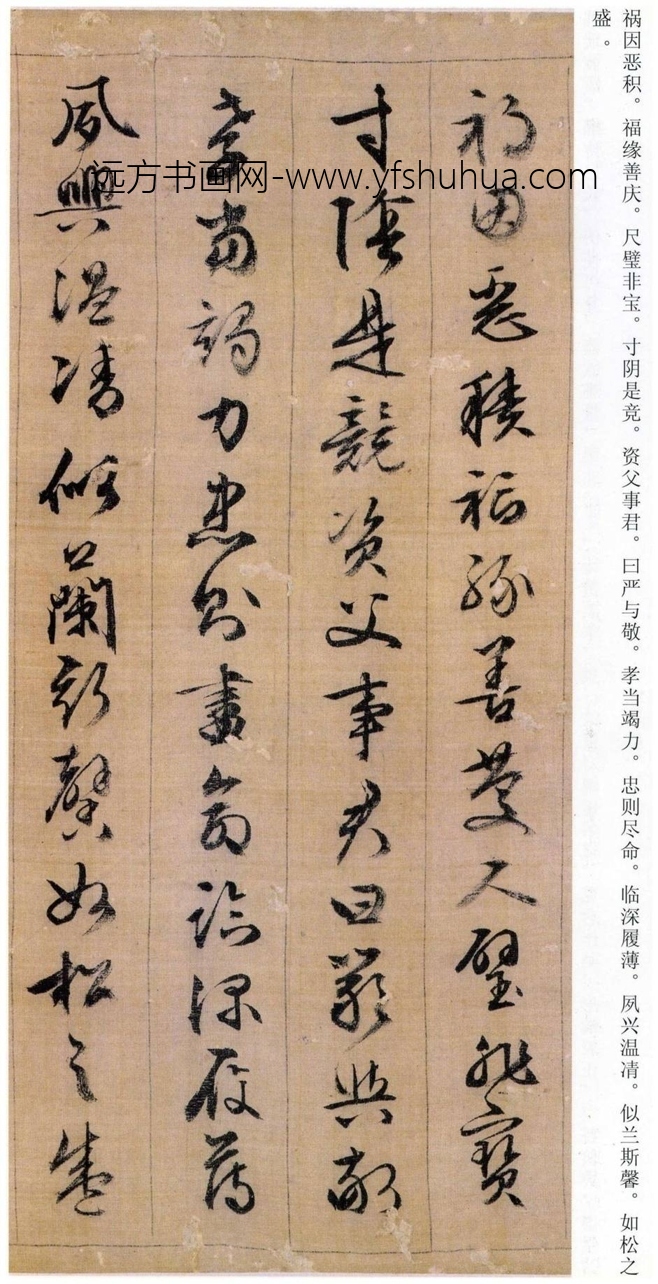 祸因恶积。福缘善庆。尺璧非宝。寸阴是竞。资父事君。曰严与敬。孝当竭力。忠则尽命。临深履薄。夙兴温凊。似兰斯馨。如松之
盛。
禍因惡積福緣善慶尺璧非寶
寸陰是競資父事君曰嚴與敬
孝當竭力忠則盡命臨深履薄
夙興溫凊似蘭斯馨如松之盛
远方书画网-www.yfshuhua.com